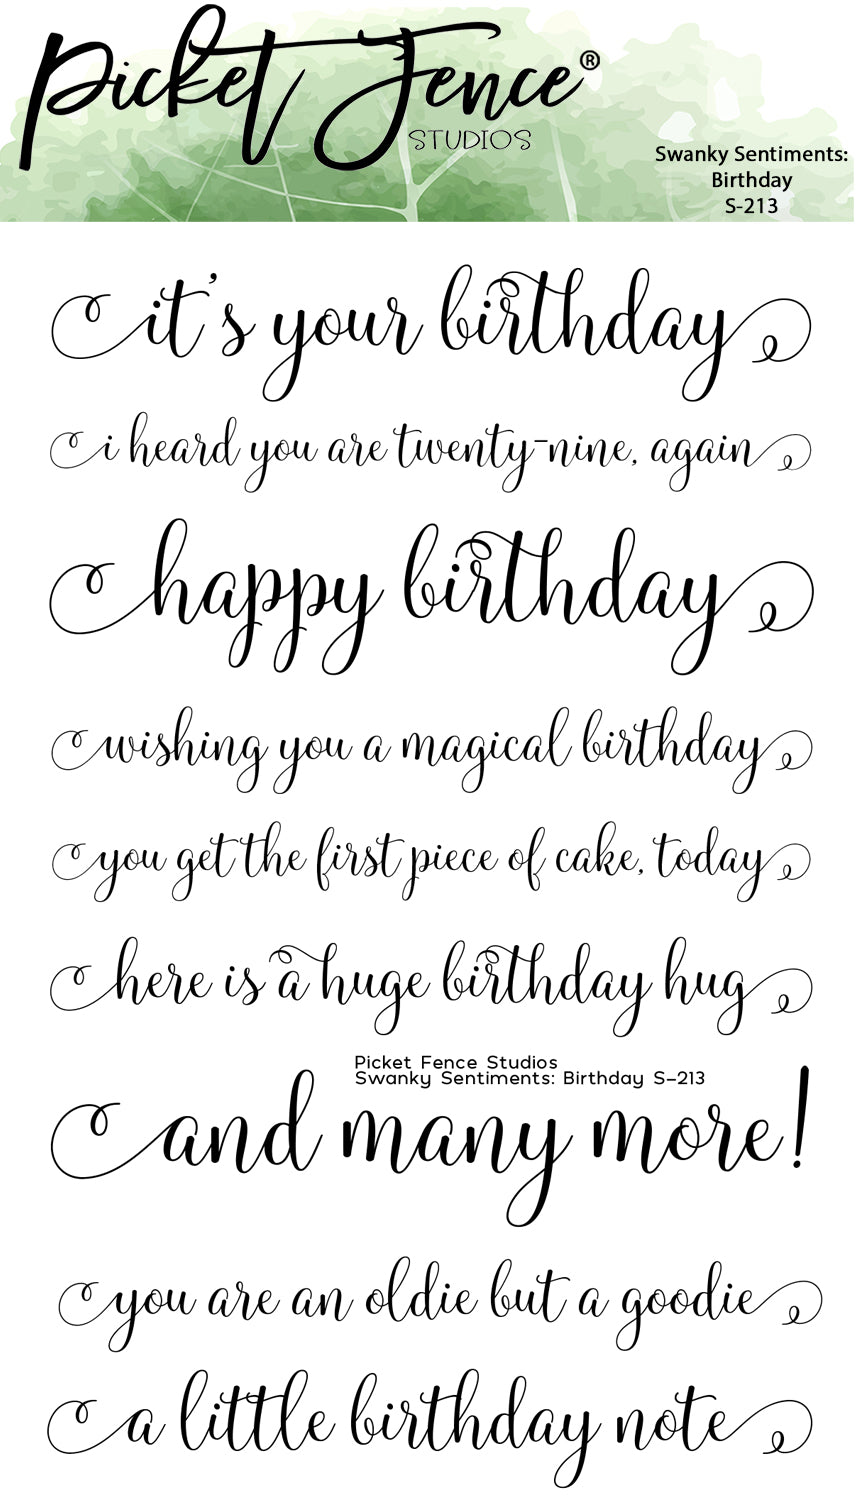 Picket Fence®
STUDIOS
Swanky Sentiments:
Birthday
S-213
it's your birthday
i heard you are twenty-nine, again
happy birthday
wishing you a magical birthday
you get the first piece of cake, today
here is a huge birthday hug
Picket Fence Studios
Swanky Sentiments: Birthday S-213
and many more!
you are an oldie but a goodie
a little birthday note